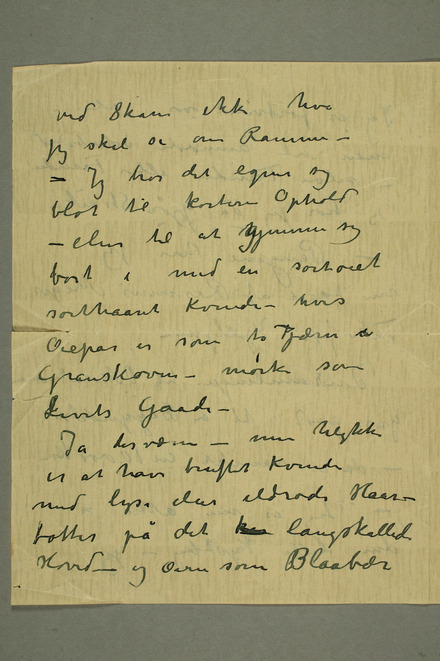 ved Skam ikke hva
jeg skal si om Ramme –
– Jeg tror det egner sig
blot til kortere Ophold
– eller til at gjemme sig
bort i med en sortøiet
sorthaaret Kvinde – hvis
Øiepar er som to Tjærn i
Granskoven – mørke som
Livets Gaade –
Ja desværre – men
er at have Kvinde
med lyse eller ildrøde Haar–
totter på det langskallede
Hoved – og Øine som Blaabær